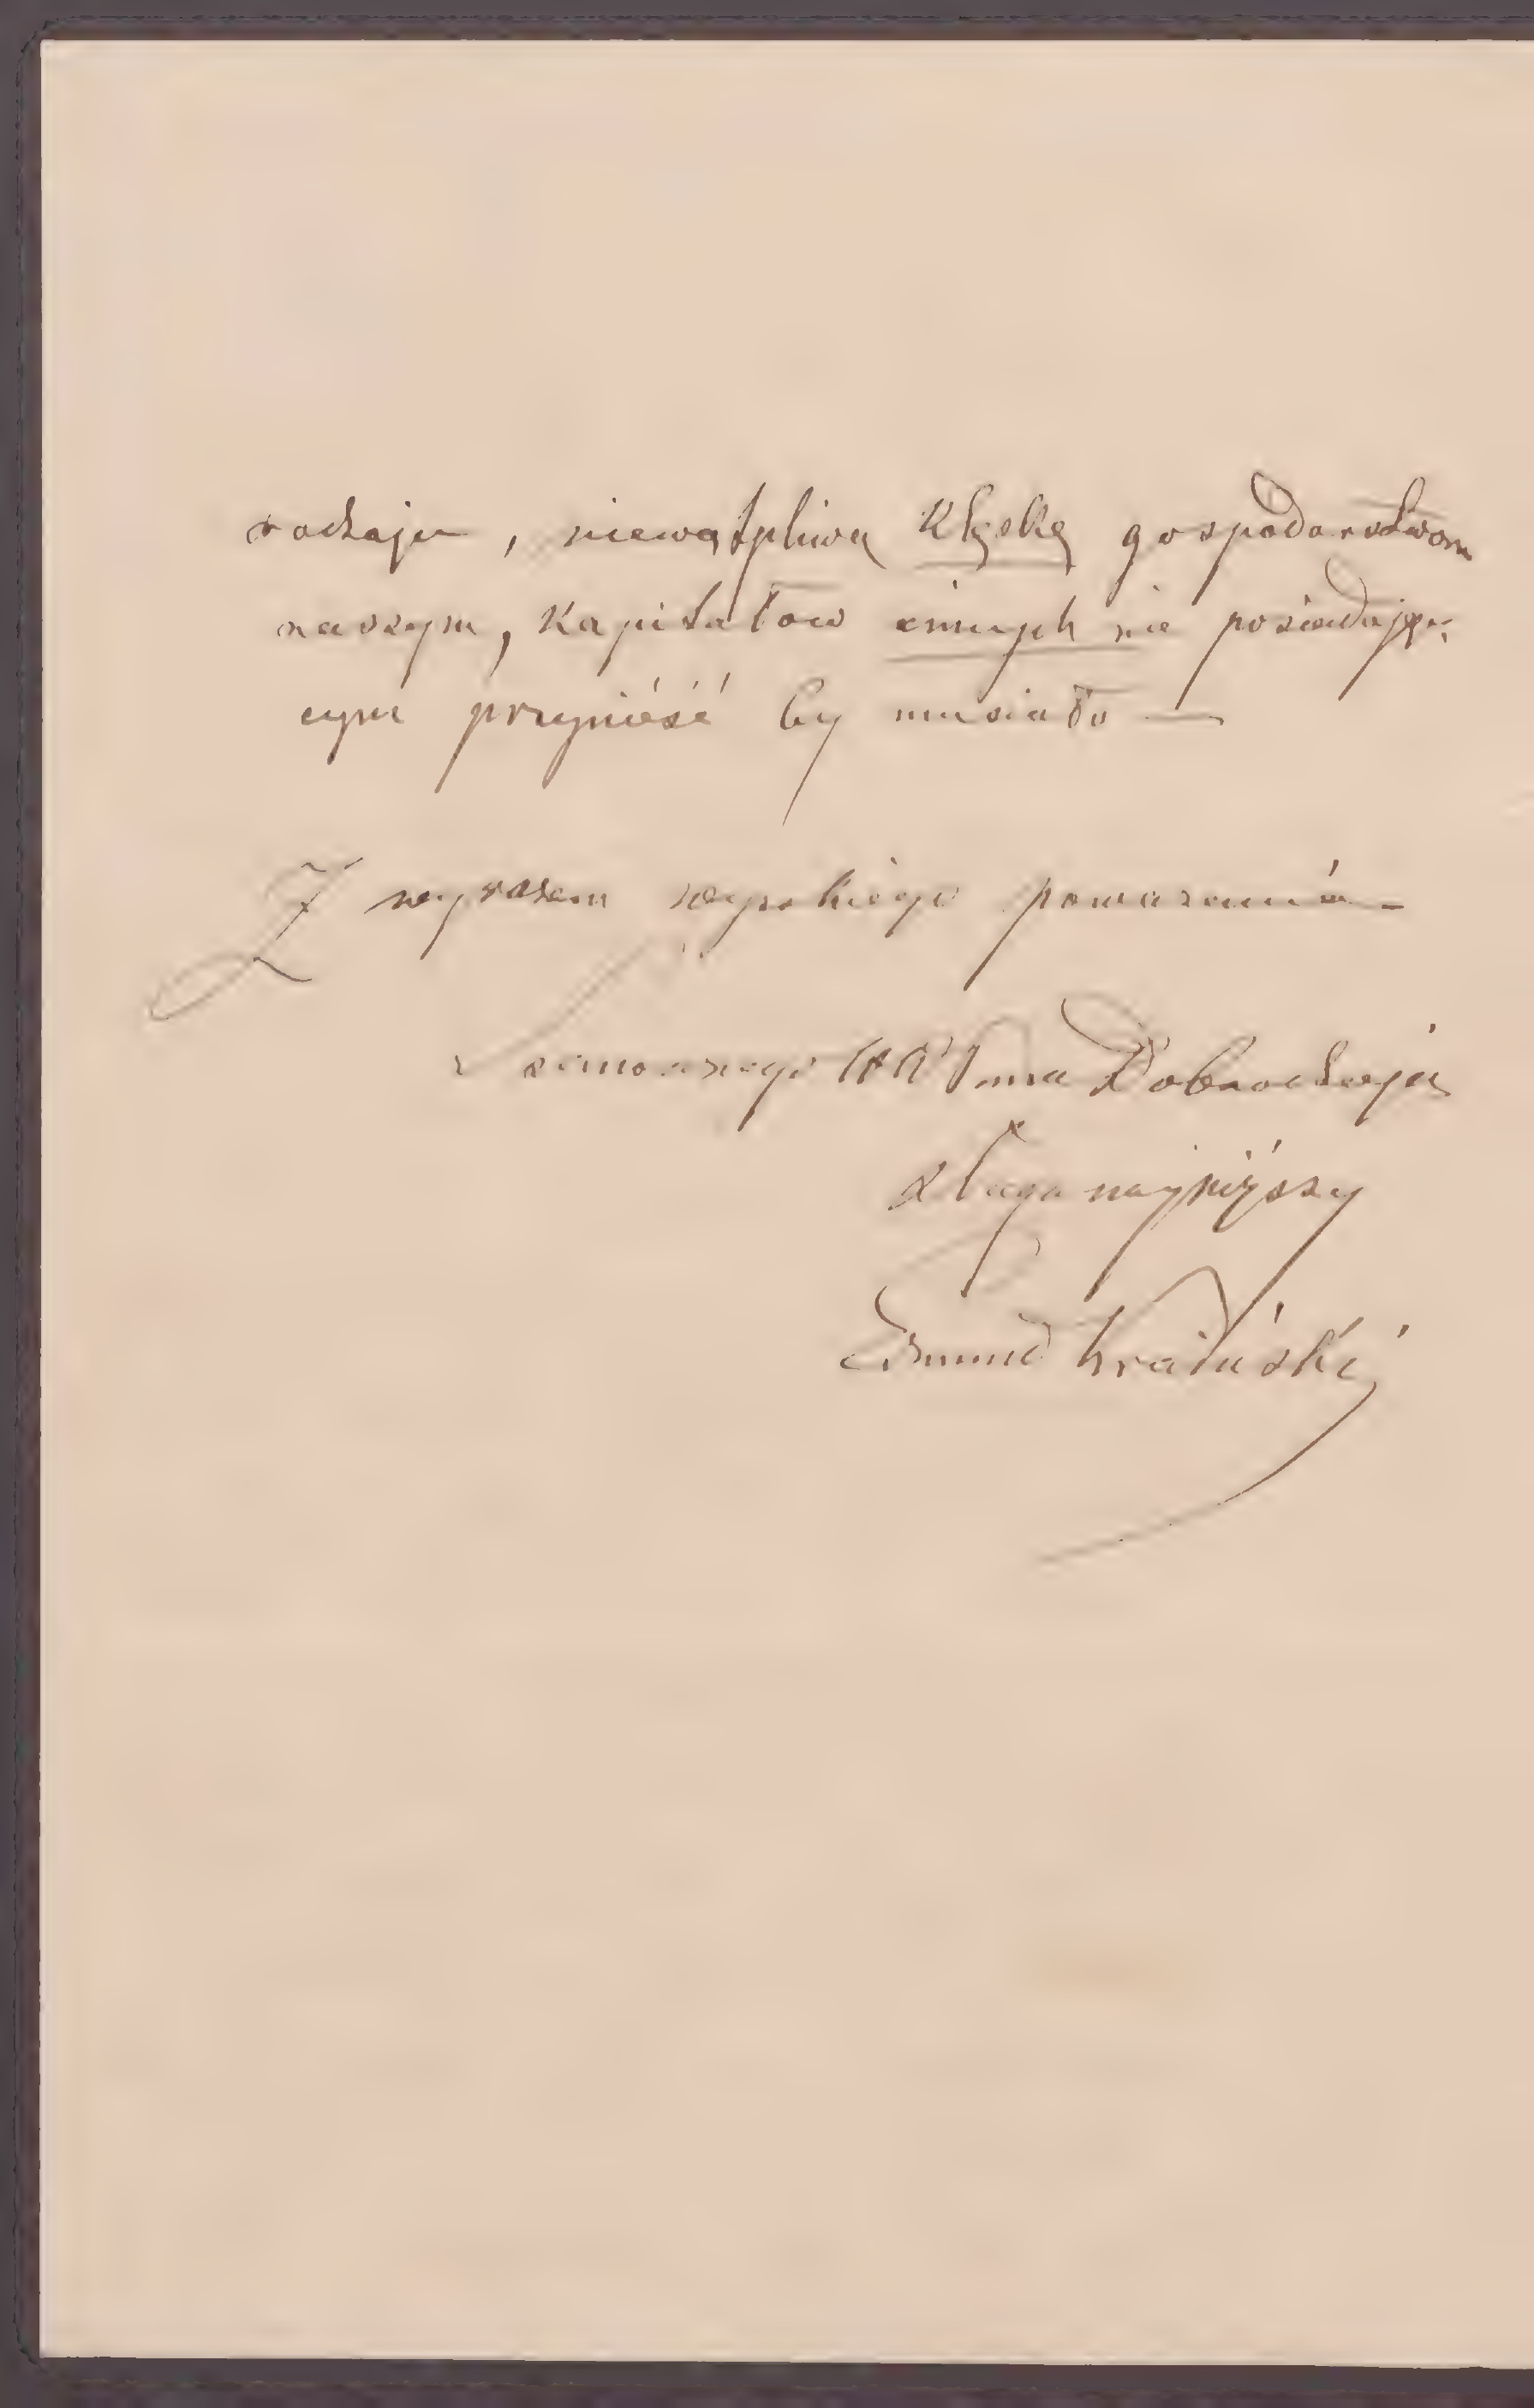 rodzaju, niewątpliwą klęskę gospodarstwom
naszym, kapitałow innych nie posiadają-
cym przynieść by musiało —
Z wyrazem wysokiego poważania
Dobrodzieja
sługa najniższy
Edmund